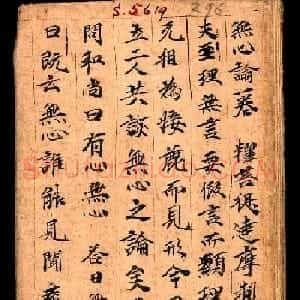 S.5619
296
無心論一卷 釋菩提達摩製
夫至理無言要假言而顯理
无相為接麁而見形今
立二人共談無心之論矣
問和尚曰有心無心 荅曰
曰既云無心誰能見聞